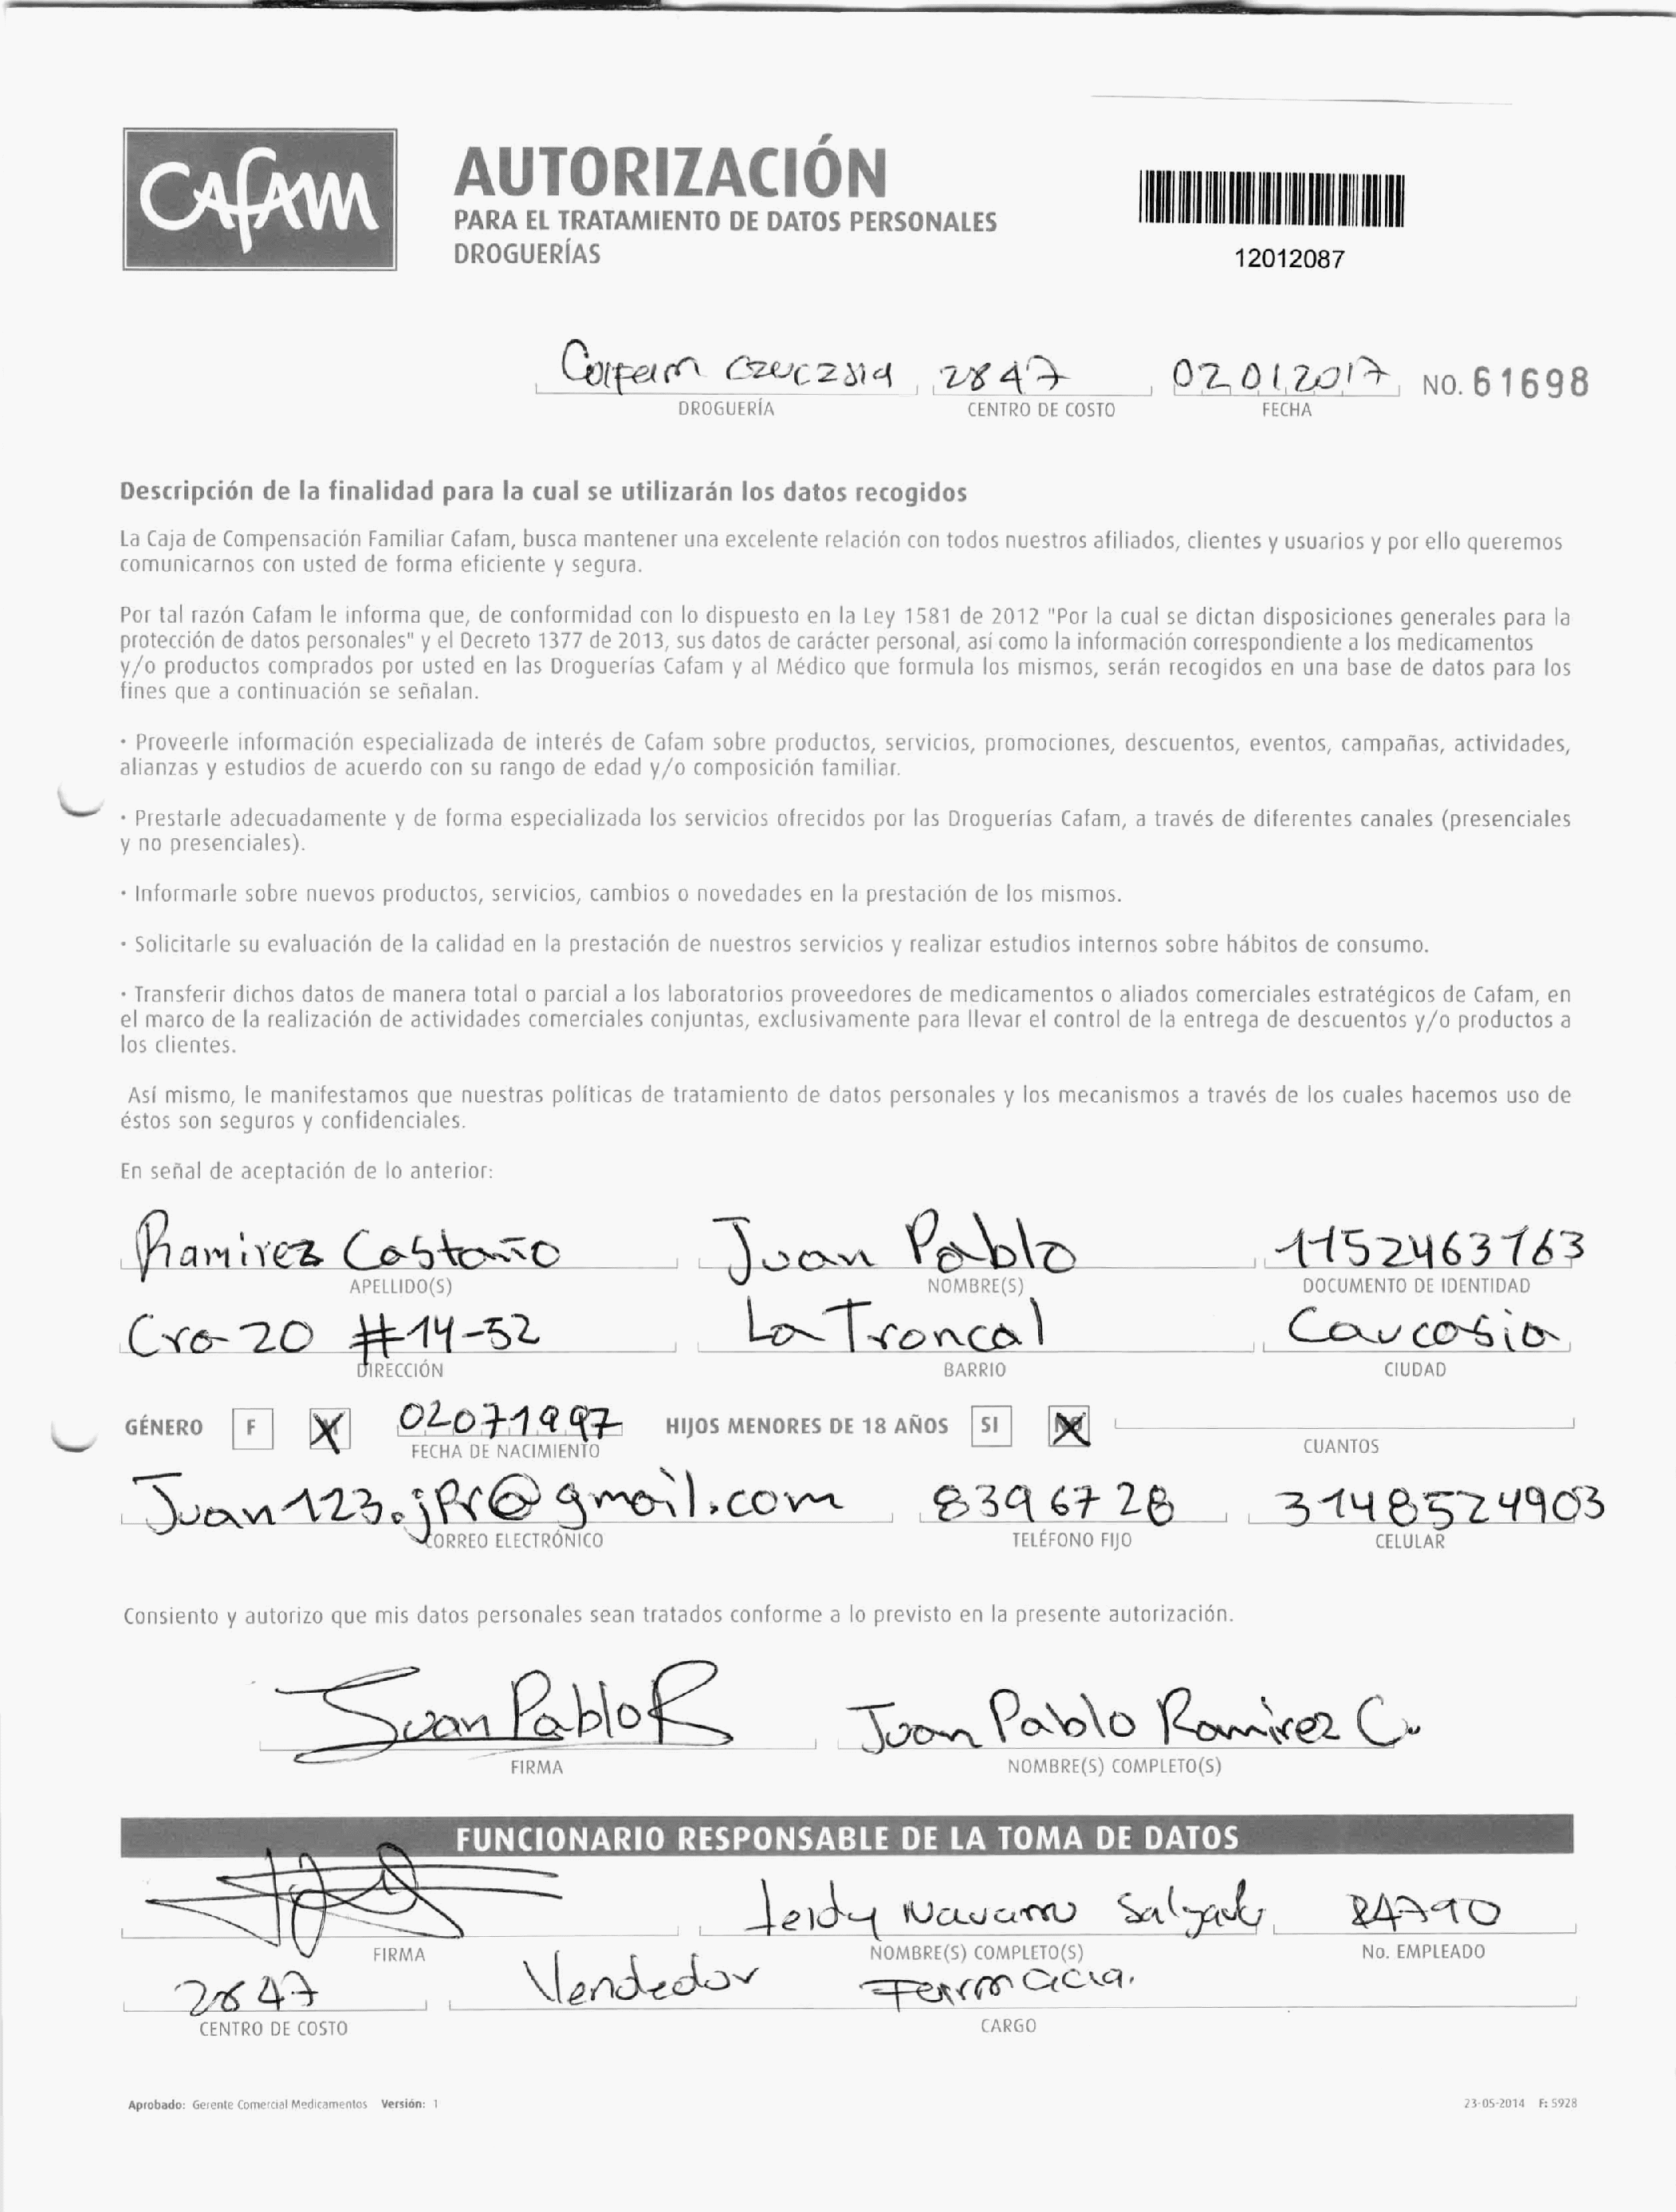 CAFAM
AUTORIZACIÓN
PARA EL TRATAMIENTO DE DATOS PERSONALES
DROGUERÍAS
12012087
2847 02012017 NO. 61698
DROGUERÍA CENTRO DE COSTO FECHA
Descripción de la finalidad para la cual se utilizarán los datos recogidos
La Caja de Compensación Familiar Cafam, busca mantener una excelente relación con todos nuestros afiliados, clientes y usuarios y por ello queremos
comunicarnos con usted de forma eficiente y segura.
Por tal razón Cafam le informa que, de conformidad con lo dispuesto en la Ley 1581 de 2012 "Por la cual se dictan disposiciones generales para la
protección de datos personales" y el Decreto 1377 de 2013, sus datos de carácter personal, así como la información correspondiente a los medicamentos
y/o productos comprados por usted en las Droguerías Cafam y al Médico que formula los mismos, serán recogidos en una base de datos para los
fines que a continuación se señalan.
· Proveerle información especializada de interés de Cafam sobre productos, servicios, promociones, descuentos, eventos, campañas, actividades,
alianzas y estudios de acuerdo con su rango de edad y/o composición familiar.
· Prestarle adecuadamente y de forma especializada los servicios ofrecidos por las Droguerías Cafam, a través de diferentes canales (presenciales
y no presenciales).
· Informarle sobre nuevos productos, servicios, cambios o novedades en la prestación de los mismos.
· Solicitarle su evaluación de la calidad en la prestación de nuestros servicios y realizar estudios internos sobre hábitos de consumo.
· Transferir dichos datos de manera total o parcial a los laboratorios proveedores de medicamentos o aliados comerciales estratégicos de Cafam, en
el marco de la realización de actividades comerciales conjuntas, exclusivamente para llevar el control de la entrega de descuentos y/o productos a
los clientes.
Así mismo, le manifestamos que nuestras políticas de tratamiento de datos personales y los mecanismos a través de los cuales hacemos uso de
éstos son seguros y confidenciales.
En señal de aceptación de lo anterior:
Ramirez Castaño Juan Pablo 1152463163
APELLIDO(S) NOMBRE(S) DOCUMENTO DE IDENTIDAD
Cra 20 #14-52 La Troncal Caucasia
DIRECCIÓN BARRIO CIUDAD
GÉNERO F X 02071997 HIJOS MENORES DE 18 AÑOS SI X
FECHA DE NACIMIENTO CUANTOS
Juan123.jpr@gmail.com 8396728 3148524903
CORREO ELECTRÓNICO TELÉFONO FIJO CELULAR
Consiento y autorizo que mis datos personales sean tratados conforme a lo previsto en la presente autorización.
Juan Pablo R Juan Pablo Ramirez C.
FIRMA NOMBRE(S) COMPLETO(S)
FUNCIONARIO RESPONSABLE DE LA TOMA DE DATOS
Leidy Navarro Salgado
FIRMA NOMBRE(S) COMPLETO(S) No. EMPLEADO
2847 Vendedor Farmacia.
CENTRO DE COSTO CARGO
Aprobado: Gerente Comercial Medicamentos Versión: 1 23-05-2014 F: 5928